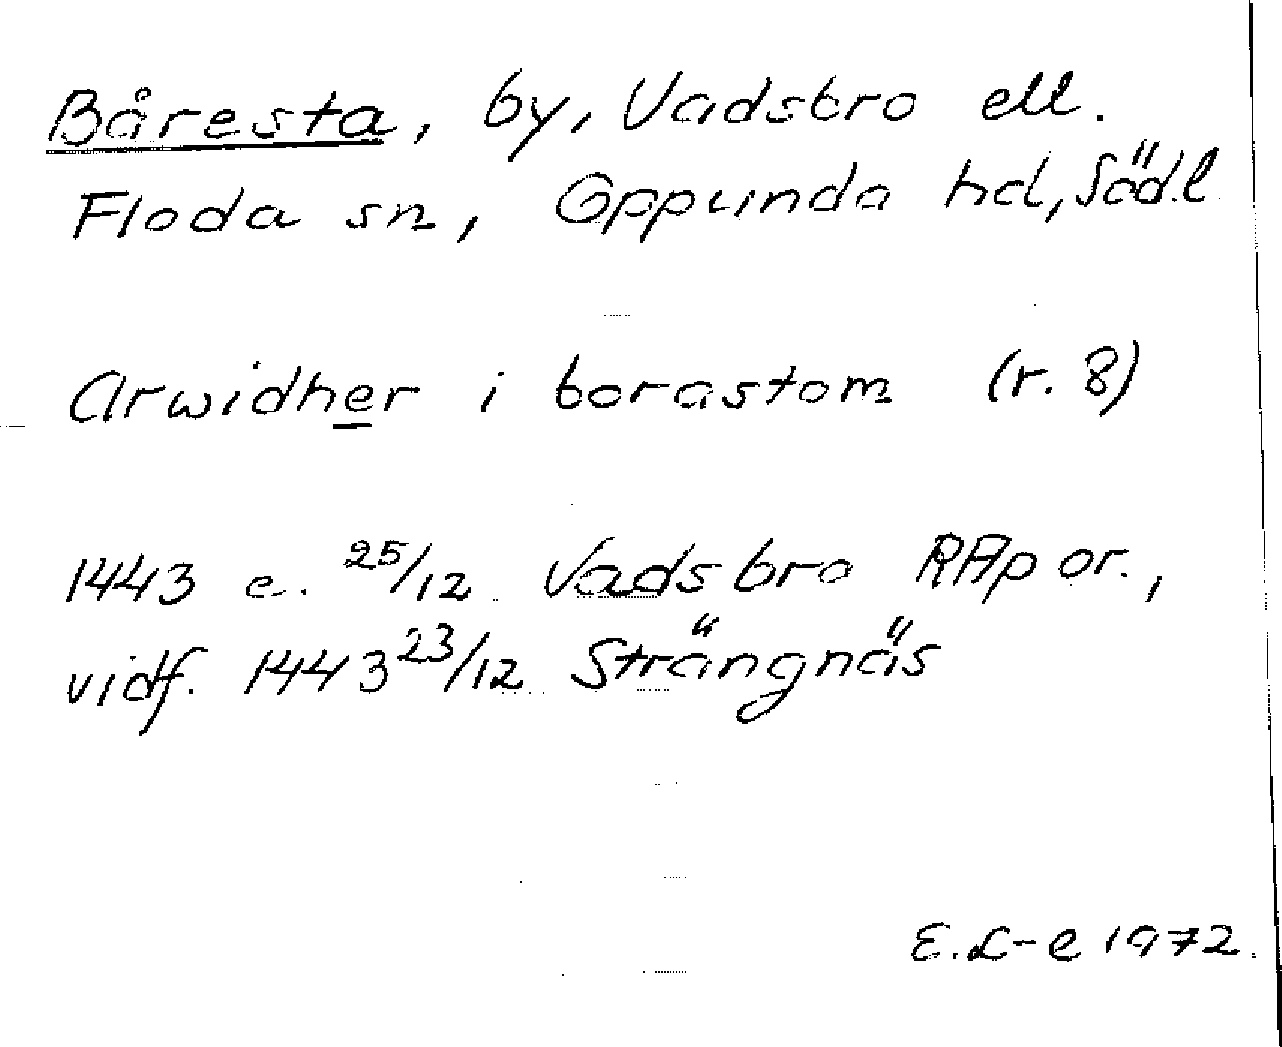 Båresta, by, Vadsbro ell.
Floda sn, Oppunda hd, Södl
arwidher i borastom (r. 8)
1443 e. 25/12 Vadsbro RAp or.,
vidf. 1443 23/12 Strängnäs
E.L-e 1972.